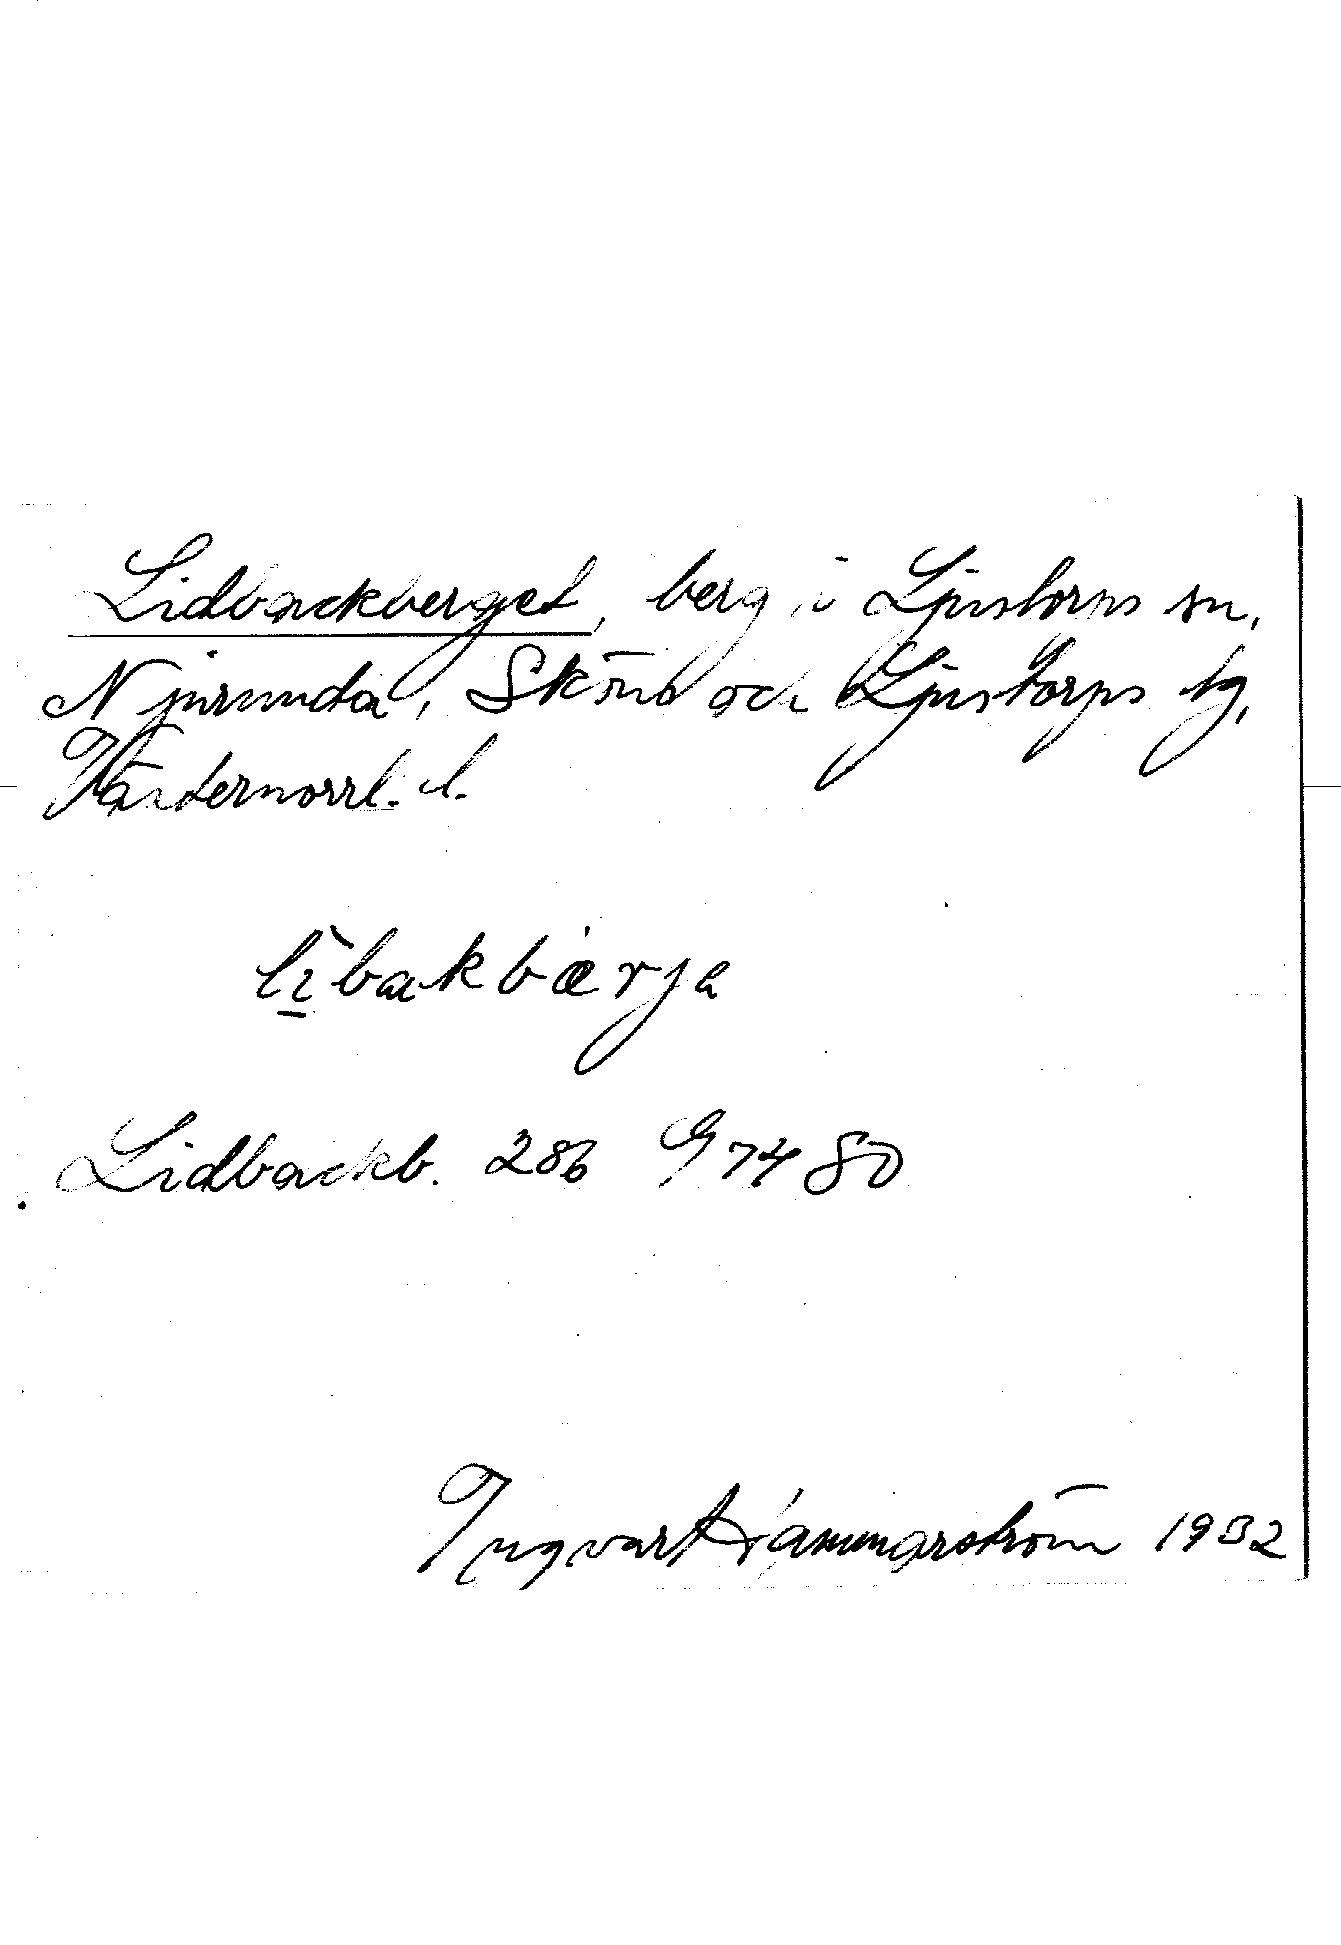 Lidbackberget, berg i Ljustorps sn,
Njurunda, Sköns och Ljustorps tg,
Västernorrl. l.
lìbakbærja
Lidbackb. 286 G 74 80
Ingvar Hammarström 1932